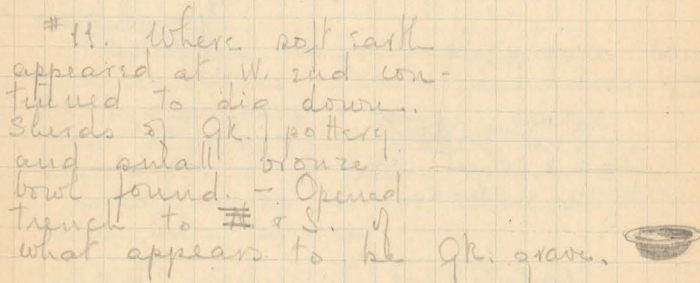 #11. Where soft earth
appeared at W. end con-
tinued to dig down..
Sherds of Gk. pottery
and small bronze
bowl found. - Opened
trench to & S. of
what appears to be Gk. grave.